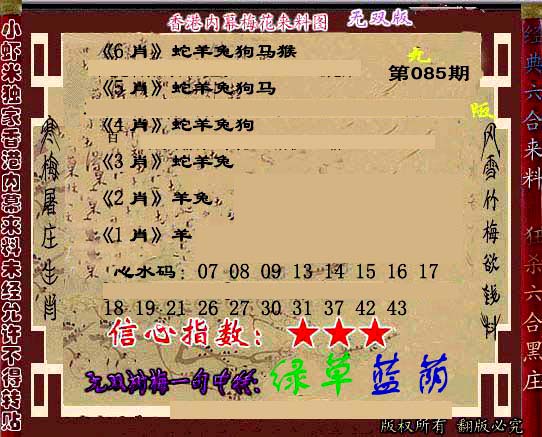 香港内幕梅花来料图 无双版
《6 肖》蛇羊兔狗马猴
第085期
《5 肖》蛇羊兔狗马
《4 肖》蛇羊兔狗
《3 肖》蛇羊兔
《2 肖》羊兔
《1 肖》羊
心水码：07 08 09 13 14 15 16 17
18 19 21 26 27 30 31 37 42 43
信心指数：★★★
一句中特：绿草蓝荫
版权所有 翻版必究
小虾米独家香港内幕来料未经允许不得转贴
寒梅屠庄生肖
风雪竹梅欲钱料
经典六合来料 狂杀六合黑庄